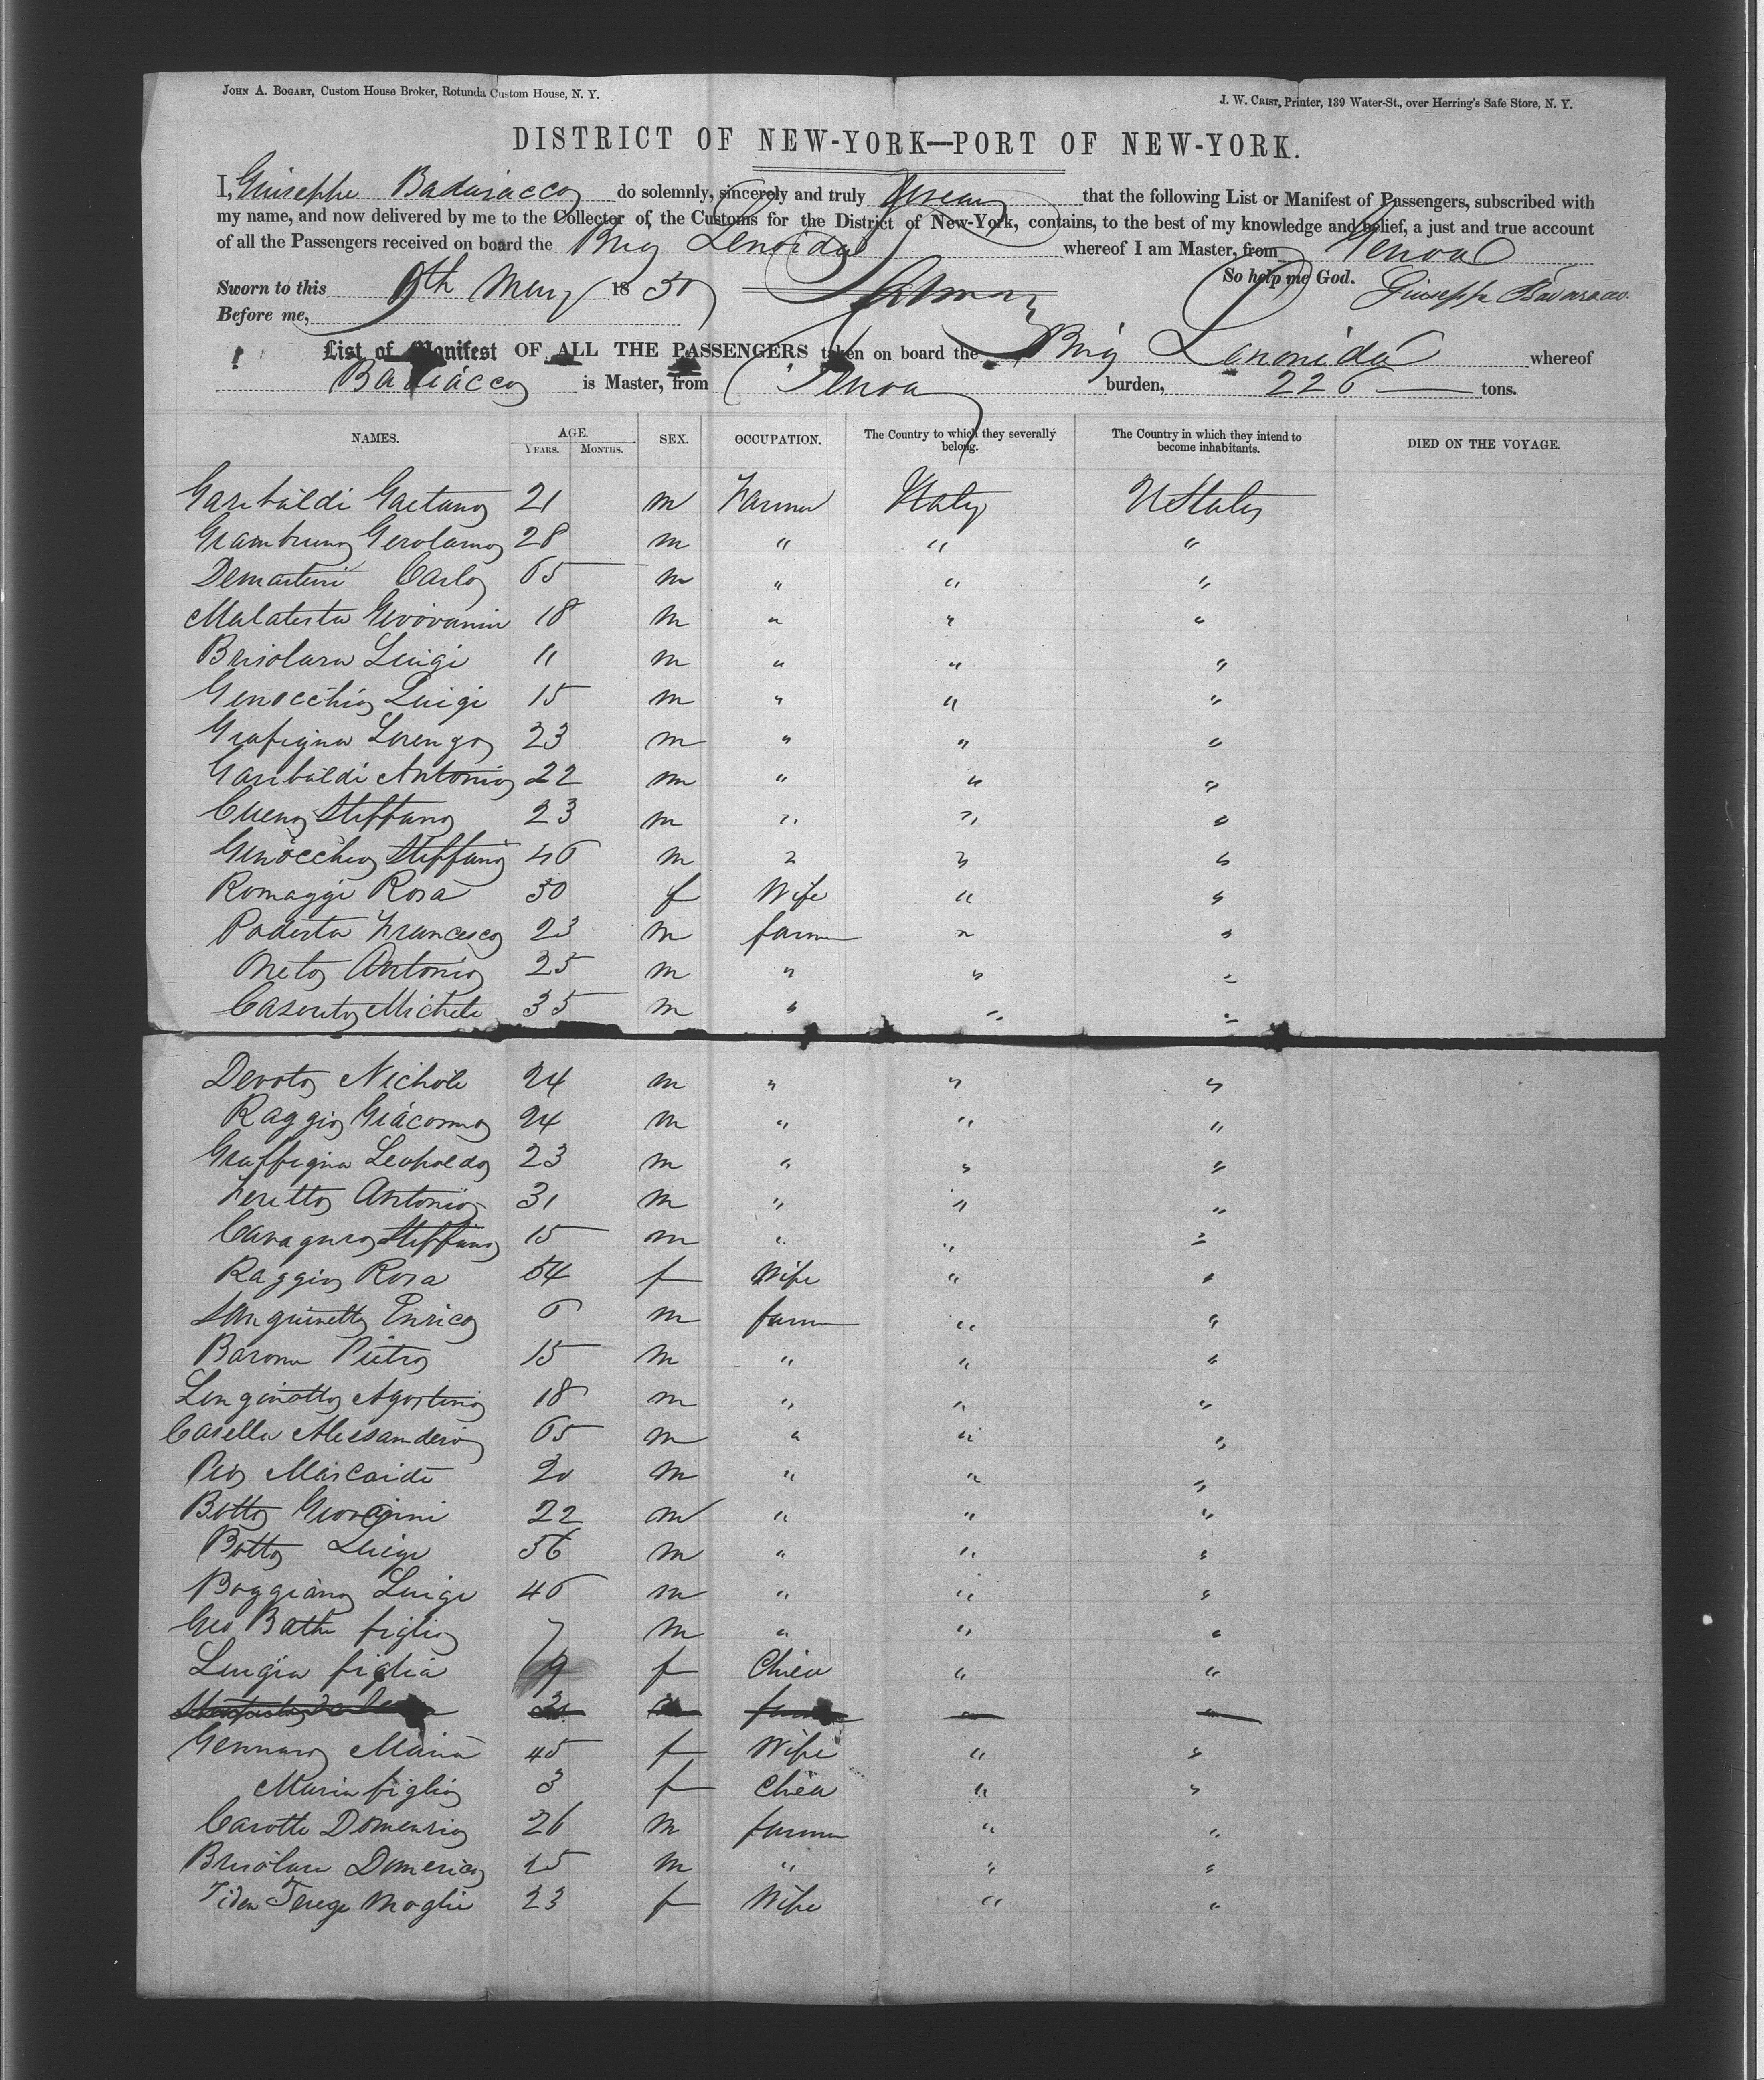 JOHN A. BOGART, Custom House Broker, Rotunda Custom House, N. Y.
J. W. CRIST, Printer, 139 Water-St., over Herring's Safe Store, N. Y.
DISTRICT OF NEW-YORK—PORT OF NEW-YORK.
I, Giuseppe Badaracco do solemnly, sincerely and truly Swear that the following List or Manifest of Passengers, subscribed with
my name, and now delivered by me to the Collector of the Customs for the District of New-York, contains, to the best of my knowledge and belief, a just and true account
of all the Passengers received on board the Brig Lenoida whereof I am Master, from Genoa
So help me God. Giuseppe Badaracco
Sworn to this 9th May 18
Before me,
List or Manifest OF ALL THE PASSENGERS taken on board the Brig whereof
is Master, from Genoa burden, 226 tons.
NAMES. AGE. YEARS. MONTHS. SEX. OCCUPATION. The Country to which they severally belong. The Country in which they intend to become inhabitants. DIED ON THE VOYAGE.
Garibaldi Gaetano 21 m Farmer Italy UStates
Giambruno Gerolamo 28 m " " "
Demartini Carlo 65 m " " "
Malatesta Giovanni 18 m " " "
Brisolara Luigi 11 m " " "
Genocchio Luigi 15 m " " "
Grafigna Lorenzo 23 m " " "
Garibaldi Antonio 22 m " " "
Cuneo Steffano 23 m " " "
Genocchio Steffano 46 m " " "
Romaggi Rosa 30 f Wife " "
Podesta Francesco 23 m farmer " "
Oneto Antonio 25 m " " "
Casoreto Michele 35 m " " "
Devoto Nichole 24 m " " "
Raggio Giacomo 24 m " " "
Graffigna Leopoldo 23 m " " "
Feretto Antonio 31 m " " "
Cavagnro Steffano 15 m " " "
Raggio Rosa 54 f Wife " "
Sanguinetto Enrico 6 m farmer " "
Barone Pietro 15 m " " "
Longinotto Agostino 18 m " " "
Casella Alessandero 65 m " " "
Pio 20 m " " "
Botto Giovanni 22 m " " "
Botto Luigi 36 m " " "
Boggiano Luigi 46 m " " "
Gio Batta figlio 7 m " " "
Luigia figlia 9 f " "
Gennaro Maria 45 f Wife " "
Maria figlio 3 f " "
Carotte Domenico 26 m farmer " "
Brisolara Domenico 25 m " " "
Idem Tereze Moglie 23 f Wife " "